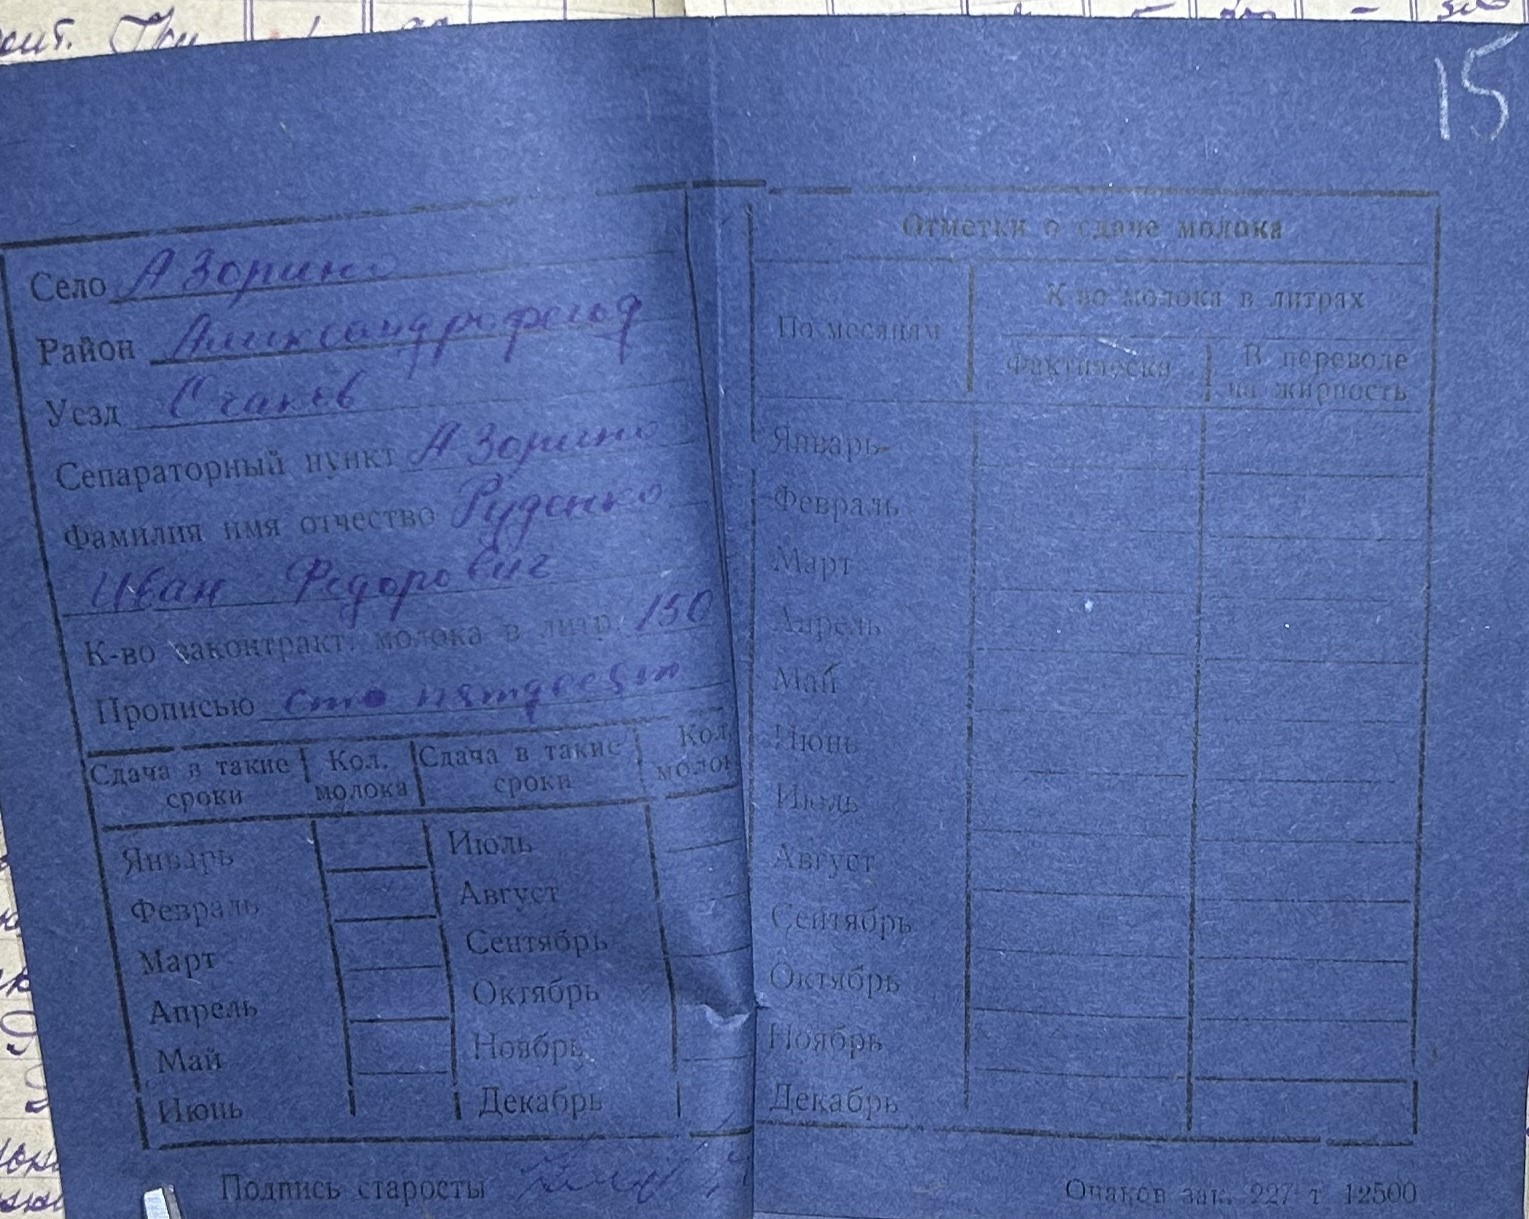 15
Село А Зорино
Район Александрофельд
Уезд Очаков
Сепараторный пункт А Зорино
Фамилия имя отчество Руденко
Иван Федорович
К-во законтракт. молока в литр. 150
Прописью сто пятдесят
Сдача в такие сроки Кол. молока Сдача в такие сроки Кол. молок
Январь Июль
Февраль Август
Март Сентябрь
Апрель Октябрь
Май Ноябрь
Июнь Декабрь
Подпись старосты
Отметки о сдаче молока
По месяцам
К-во молока в литрах
Фактически
В переводе
на жирность
Январь
Февраль
Март
Апрель
Май
Июнь
Июль
Август
Сентябрь
Октябрь
Ноябрь
Декабрь
Очаков зак. 227 т 12500